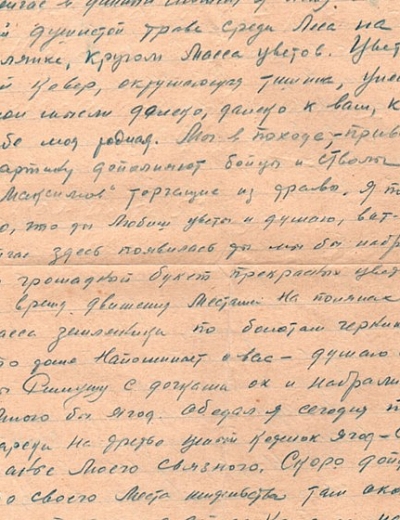 душистой траве среди леса на
кругом масса цветов. Цвет
й ковер, окружающая тишина,
мысли далеко, далеко к вам, к
бе моя родная. Мы в походе, – прив
артину дополняют бойцы и стволы
Максимов" торчащие из травы. Я
о, что ты любиш цветы и думаю, вот-
здесь появилась ты мы бы набр
громадной букет прекрасных цвет
время движения местами на полянах
асса земляники по болотам черник
напоминает о вас – думаю
с дочками ох и набрали
много бы ягод. Обедал я сегодня
на
моего связного. Скоро дой
о своего места там